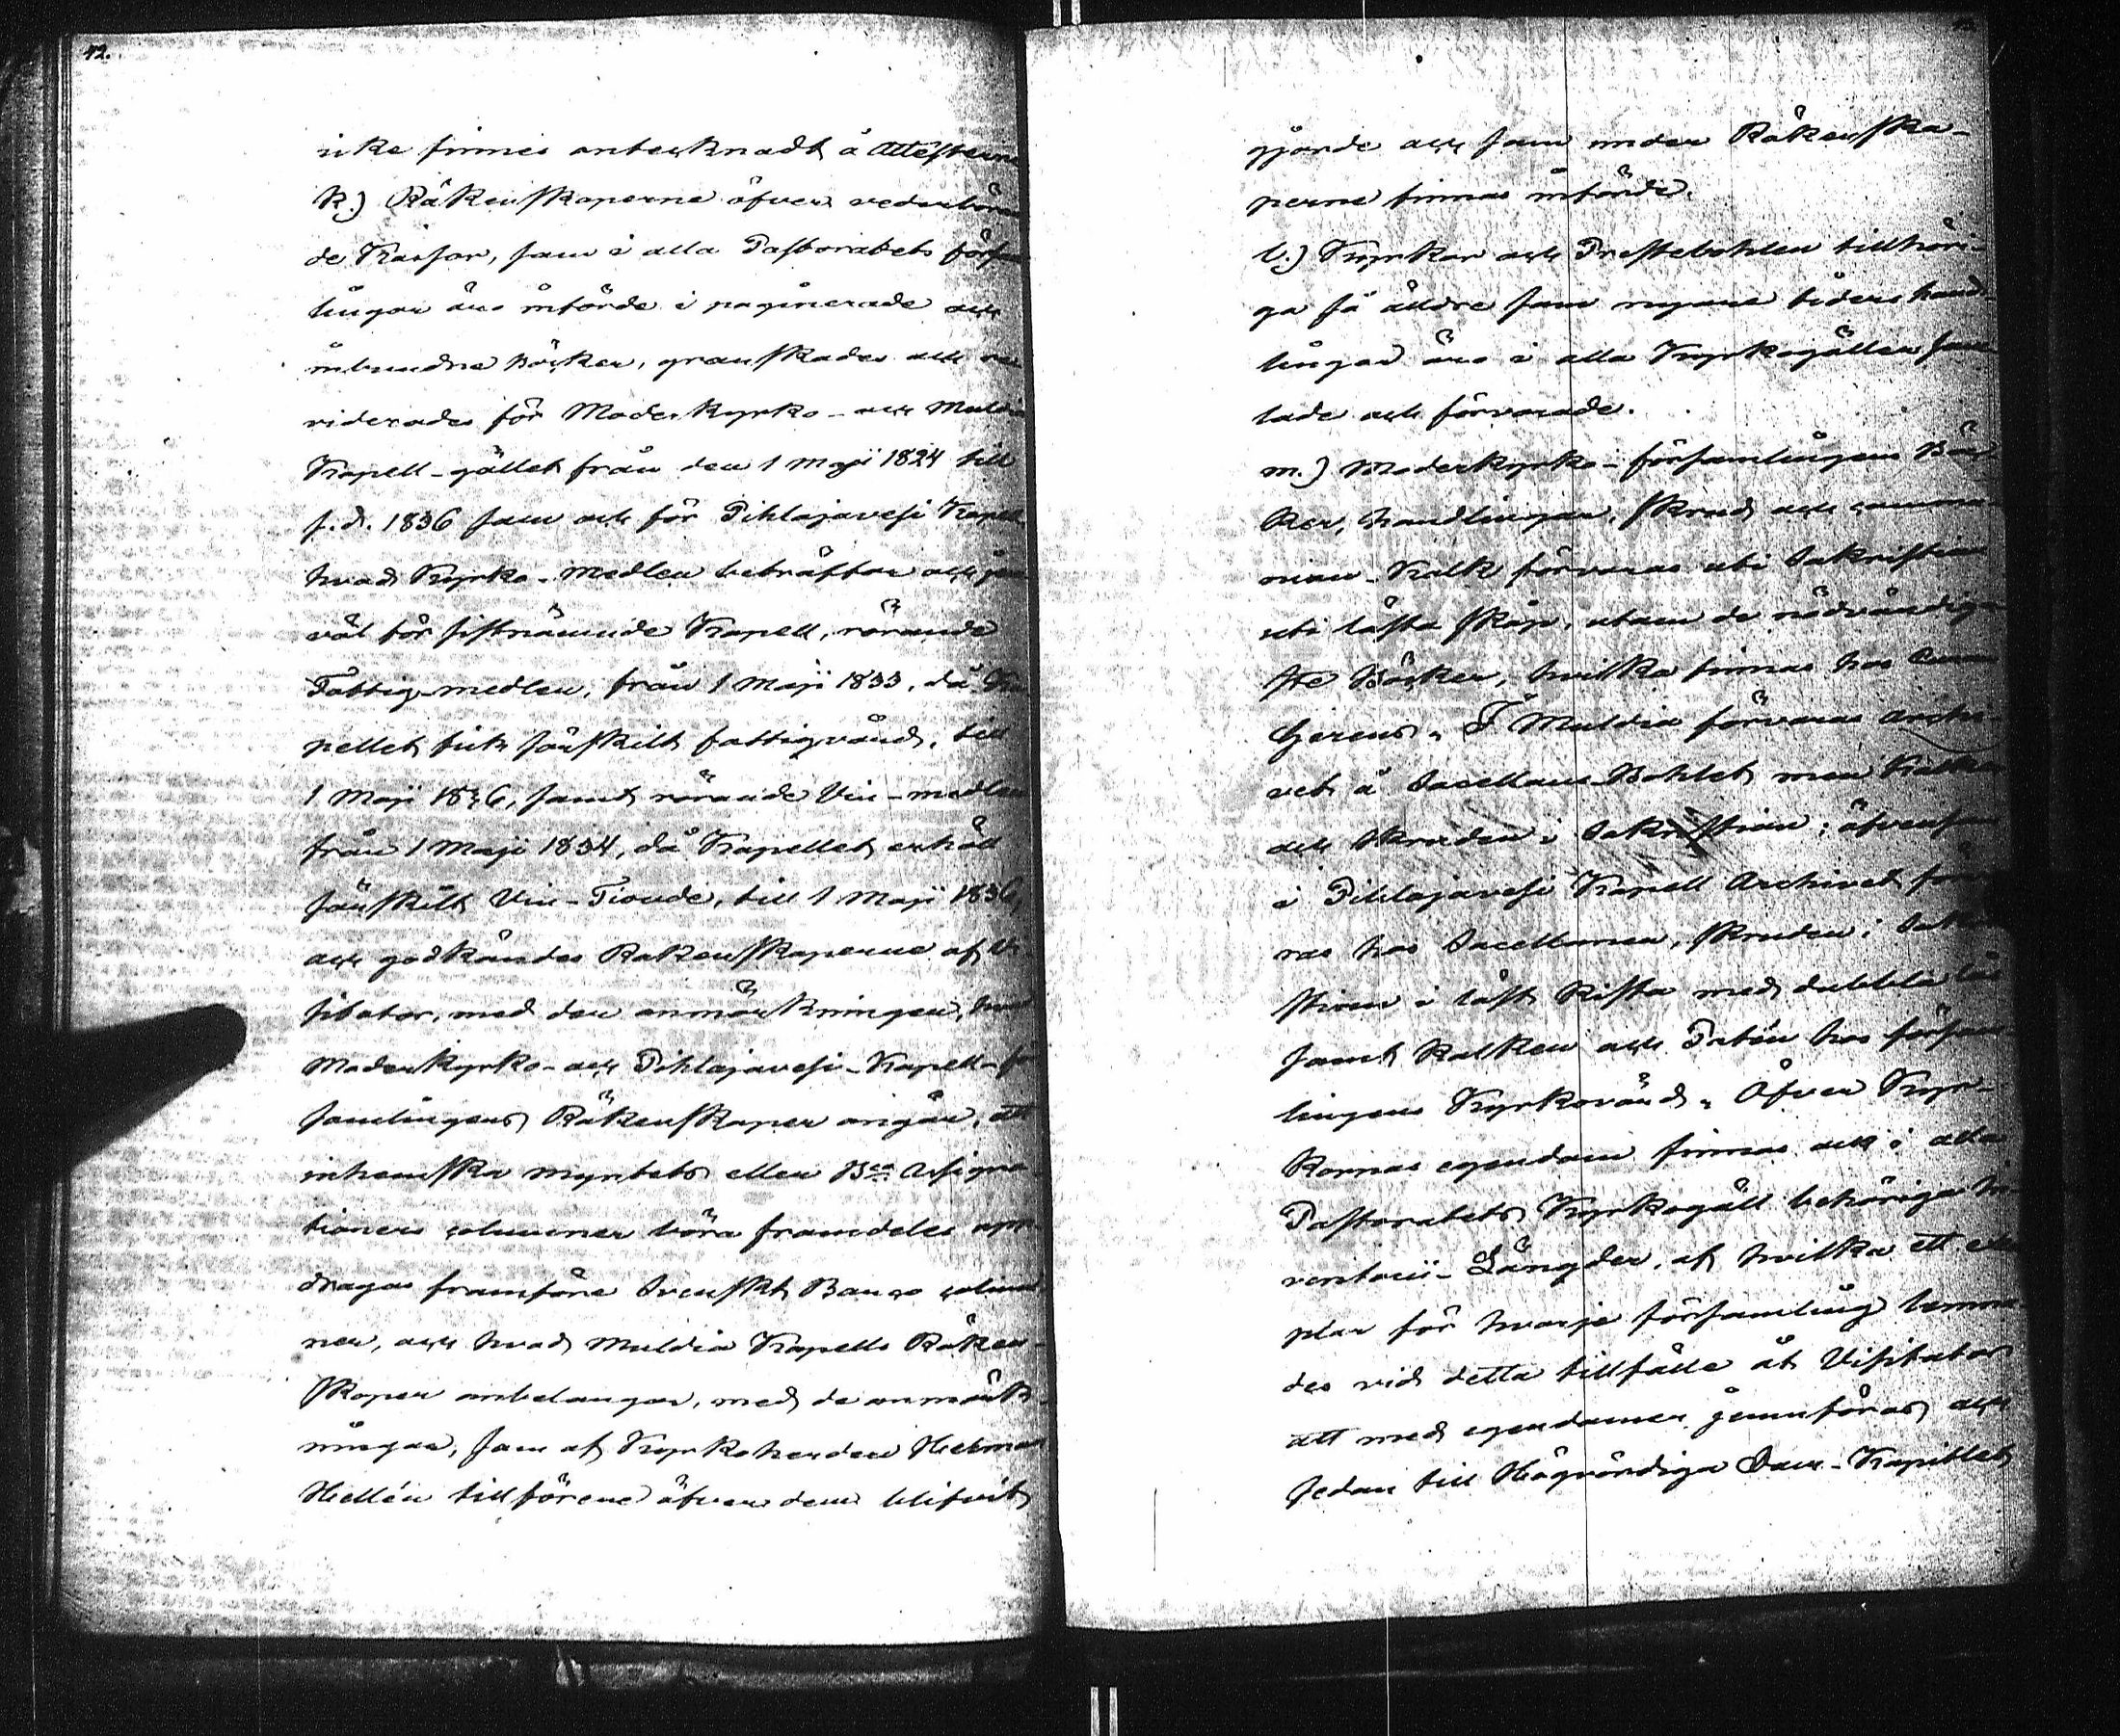 42.
icke finnes antecknadt å Attesterne
k.) Räkenskaperne öfver vederböran
de Kassor, som i alla Pastoratets försam
lingar äro införde i paginerade och
inbundne Böcker, granskades och re
viderades för Moderkyrko- och Multia
Kapell-gället från den 1 Maji 1824 till
s.d. 1836 som och för Pihlajavesi Kapell
hvad Kyrko-Medlen beträffar och jem
väl för sistnämnde Kapell, rörande
Fattig-medlen, från 1 Maji 1833, då Ka
pellet fick särskilt fattigvård, till
1 Maji 1836, samt rörande Vin-medlen
från 1 Maji 1834, då Kapellet erhöll
särskilt Vin-Tionde, till 1 Maji 1836,
och godkändes Räkenskaperne af Vi
sitator, med den anmärkningen, hvad
Moderkyrko- och Pihlajavesi-Kapell-för
samlingens Räkenskaper angår, att
inhemska myntets eller Bco Assigna
tioners columner böra framdeles upp
dragas framföre Svenskt Banco colum
ner, och hvad Multia Kapells Räken-
skaper anbelangar, med de anmärk-
ningar, som af Kyrkoherden Herman
Hellén tillförene öfver dem blifvit
gjorde och som under Räkenska-
perne finnas införde.
l.) Kyrkor och Prestebohlen tillhöri-
ga så äldre som nyare tiders hand-
lingar äro i alla Kyrkogällen sam
lade och förvarade.
m.) Moderkyrko-församlingens Böc
ker, handlingar, skrud och commu
nion-Kalk förvaras uti Sakristian
uti låsta skåp, utom de nödvändiga
ste Böcker, hvilka finnas hos
Gerens. I Multia förvaras Archi
vet å Sacellans-Bohlet men Kalken
och skruden i Sakristian; äfvensom
i Pihlajavesi Kapell Archivet förva
ras hos Sacellanen, skruden i Sakri
stian i låst kista med dubbla lås
samt Kalken och Paten hos försam
lingens Kyrkovärd. Öfver Kyr-
kornas egendom finnas ock i alla
Pastoratets Kyrkogäll behöriga In
ventarii-Längder, af hvilka ett exem
plar för hvarje församling lemna
des vid detta tillfälle åt Visitator
att med egendomen jemnföras och
sedan till Högvördiga Dom-Kapitlet